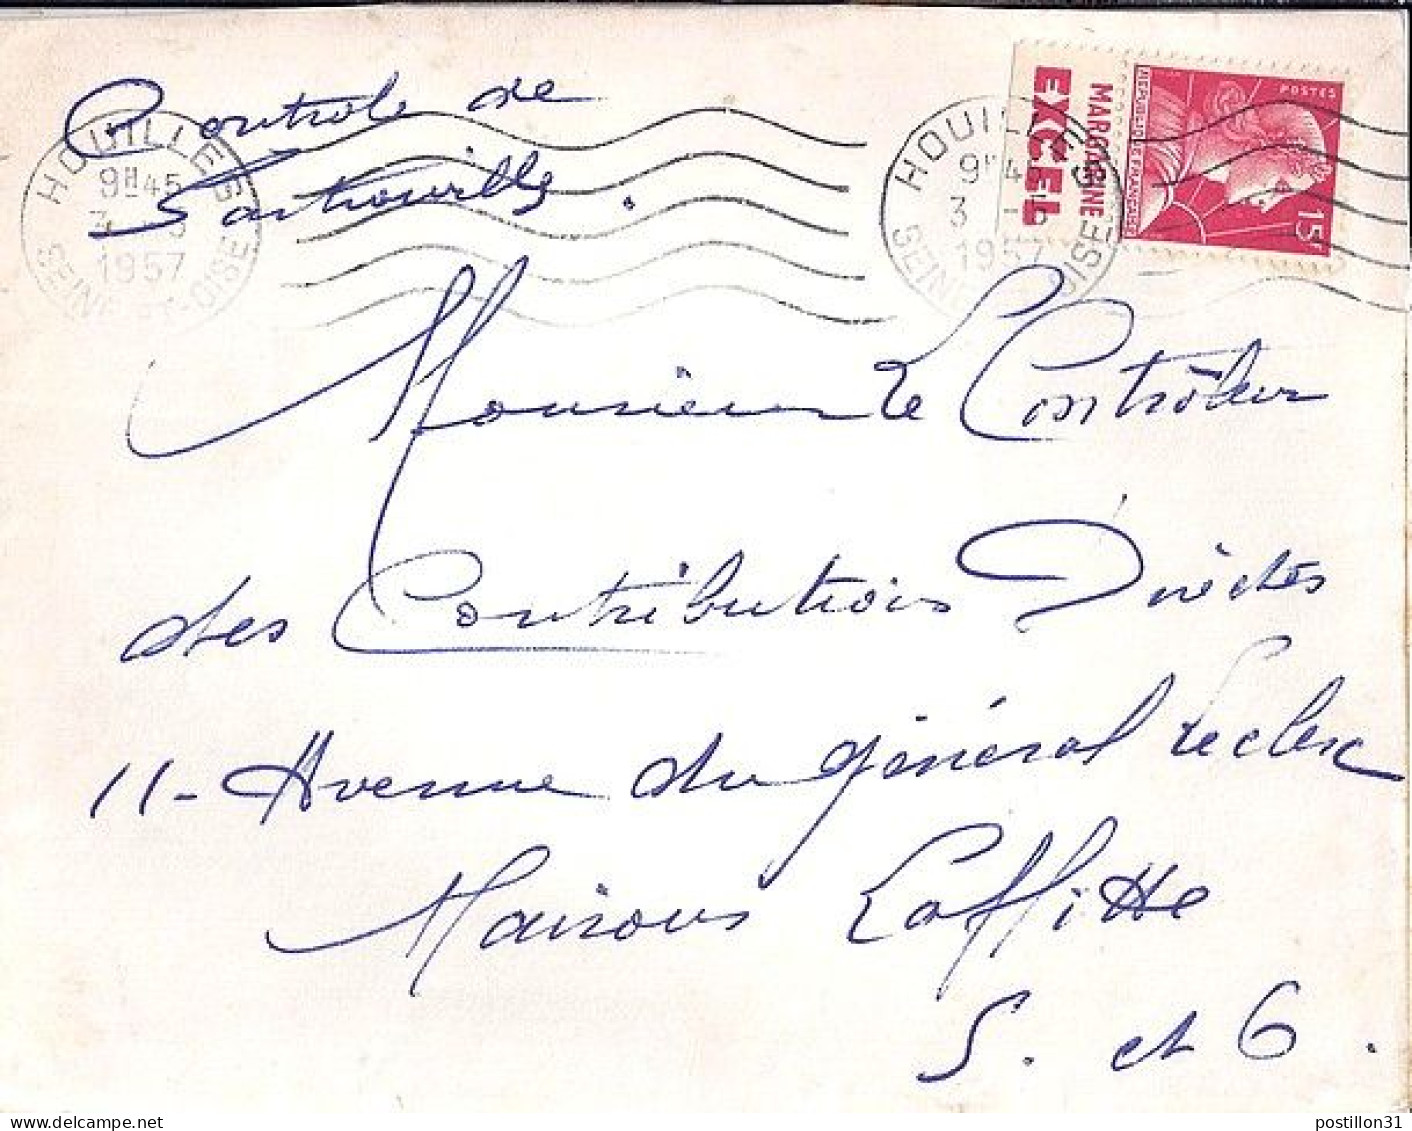 Contrôle de
Sartrouville.
HOUILLES
9H45
3 -5
1957
SEINE-ET-OISE
HOUILLES
9H45
3 -5
1957
SEINE-ET-OISE
MARGARINE
EXCEL
POSTES
15F
REPUBLIQUE FRANÇAISE
Monsieur Le Contrôleur
des Contributions Directes
11 - Avenue du général Leclerc
Maisons Laffitte
S. et O.
postillon31